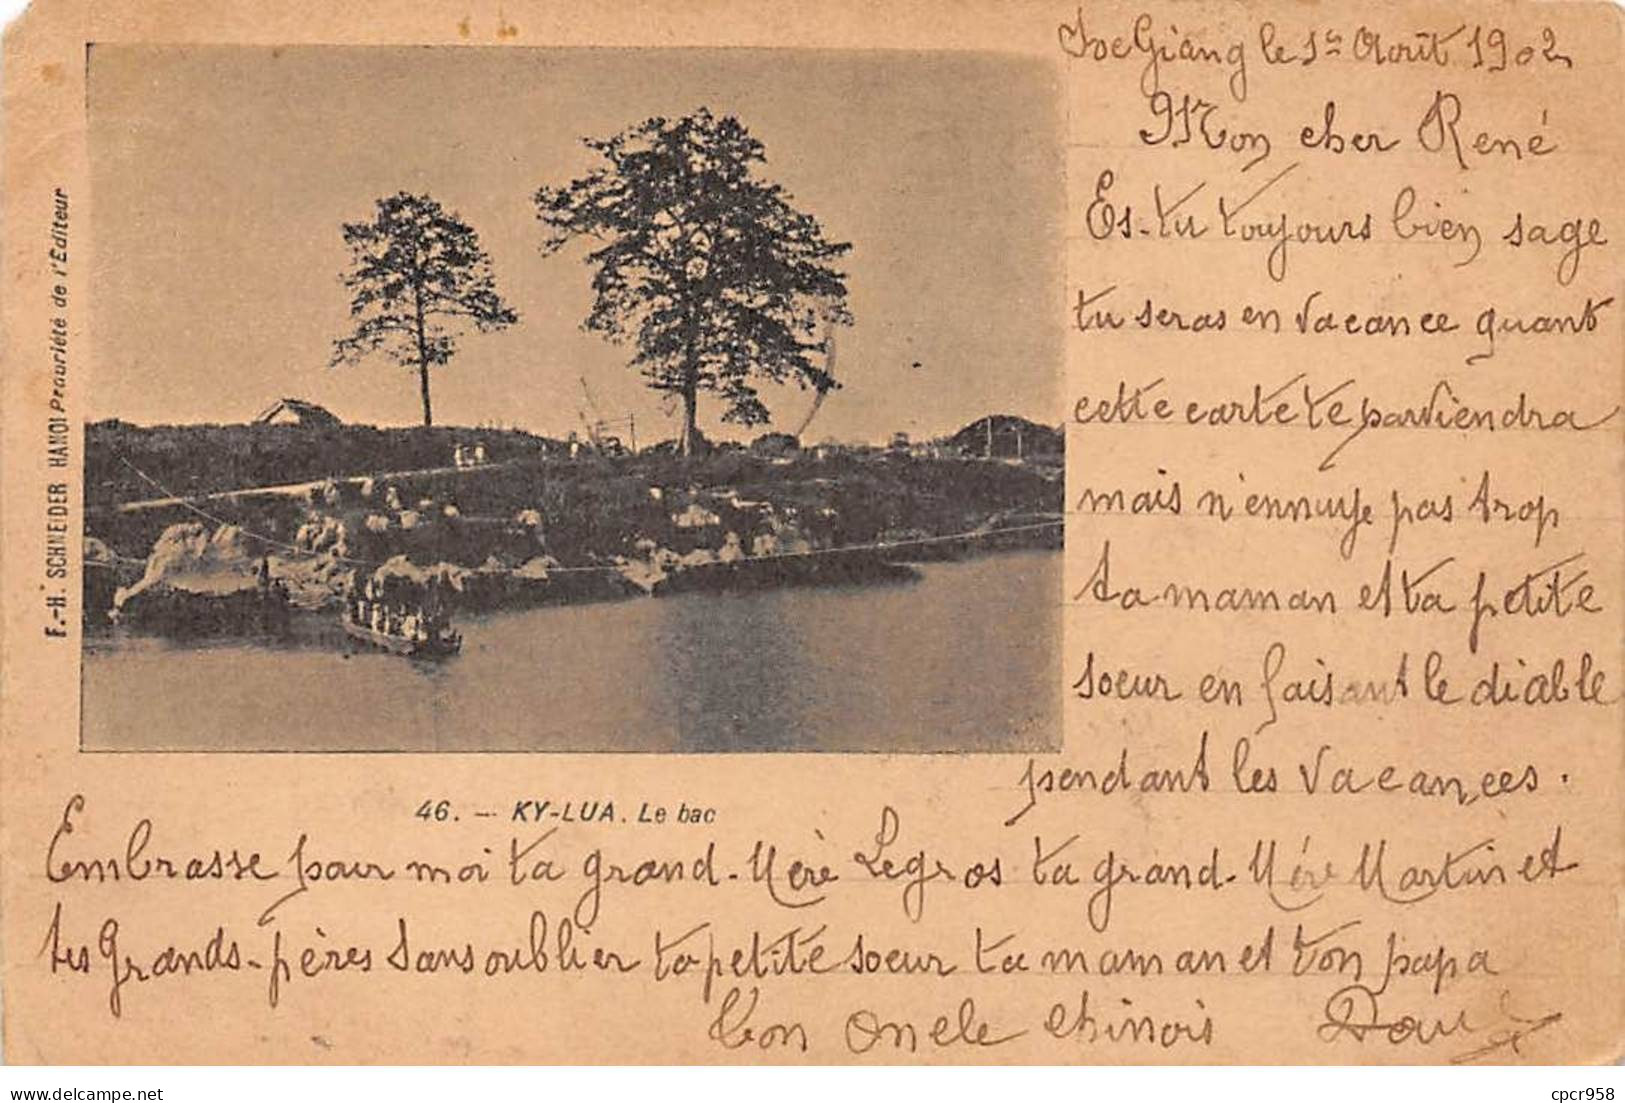 Giang le 1er Août 1902
Mon cher René
Es-tu toujours bien sage
tu seras en vacance quant
cette carte te parviendra
mais n'ennuye pas trop
ta maman et ta petite
soeur en faisant le diable
pendant les vacances.
F.-H. SCHNEIDER HANOI Propriété de l'Éditeur
46. — KY-LUA. Le bac
Embrasse pour moi ta grand-Mère Legros ta grand-Mère Martin et
tes Grands-pères sans oublier ta petite soeur ta maman et ton papa
Ton Oncle chinois
cpcr958